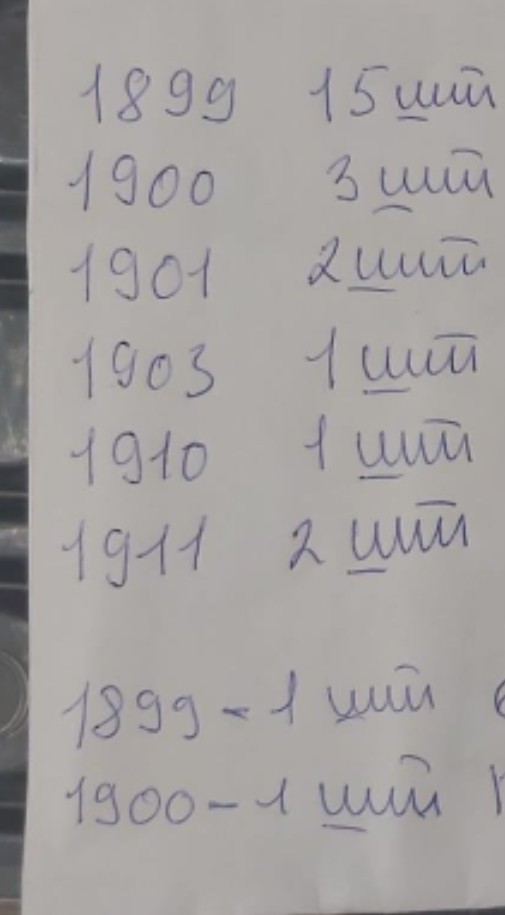 1899 15 шт
1900 3 шт
1901 2 шт
1903 1 шт
1910 1 шт
1911 2 шт
1899 - 1 шт
1900 - 1 шт